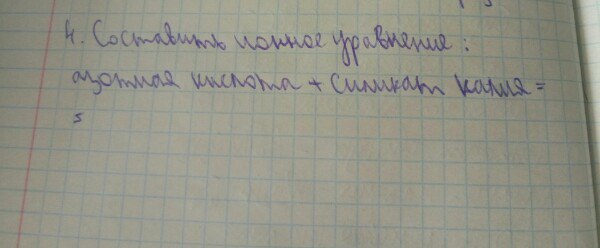 4. Составить ионное уравнение:
азотная кислота + силикат калия =
5